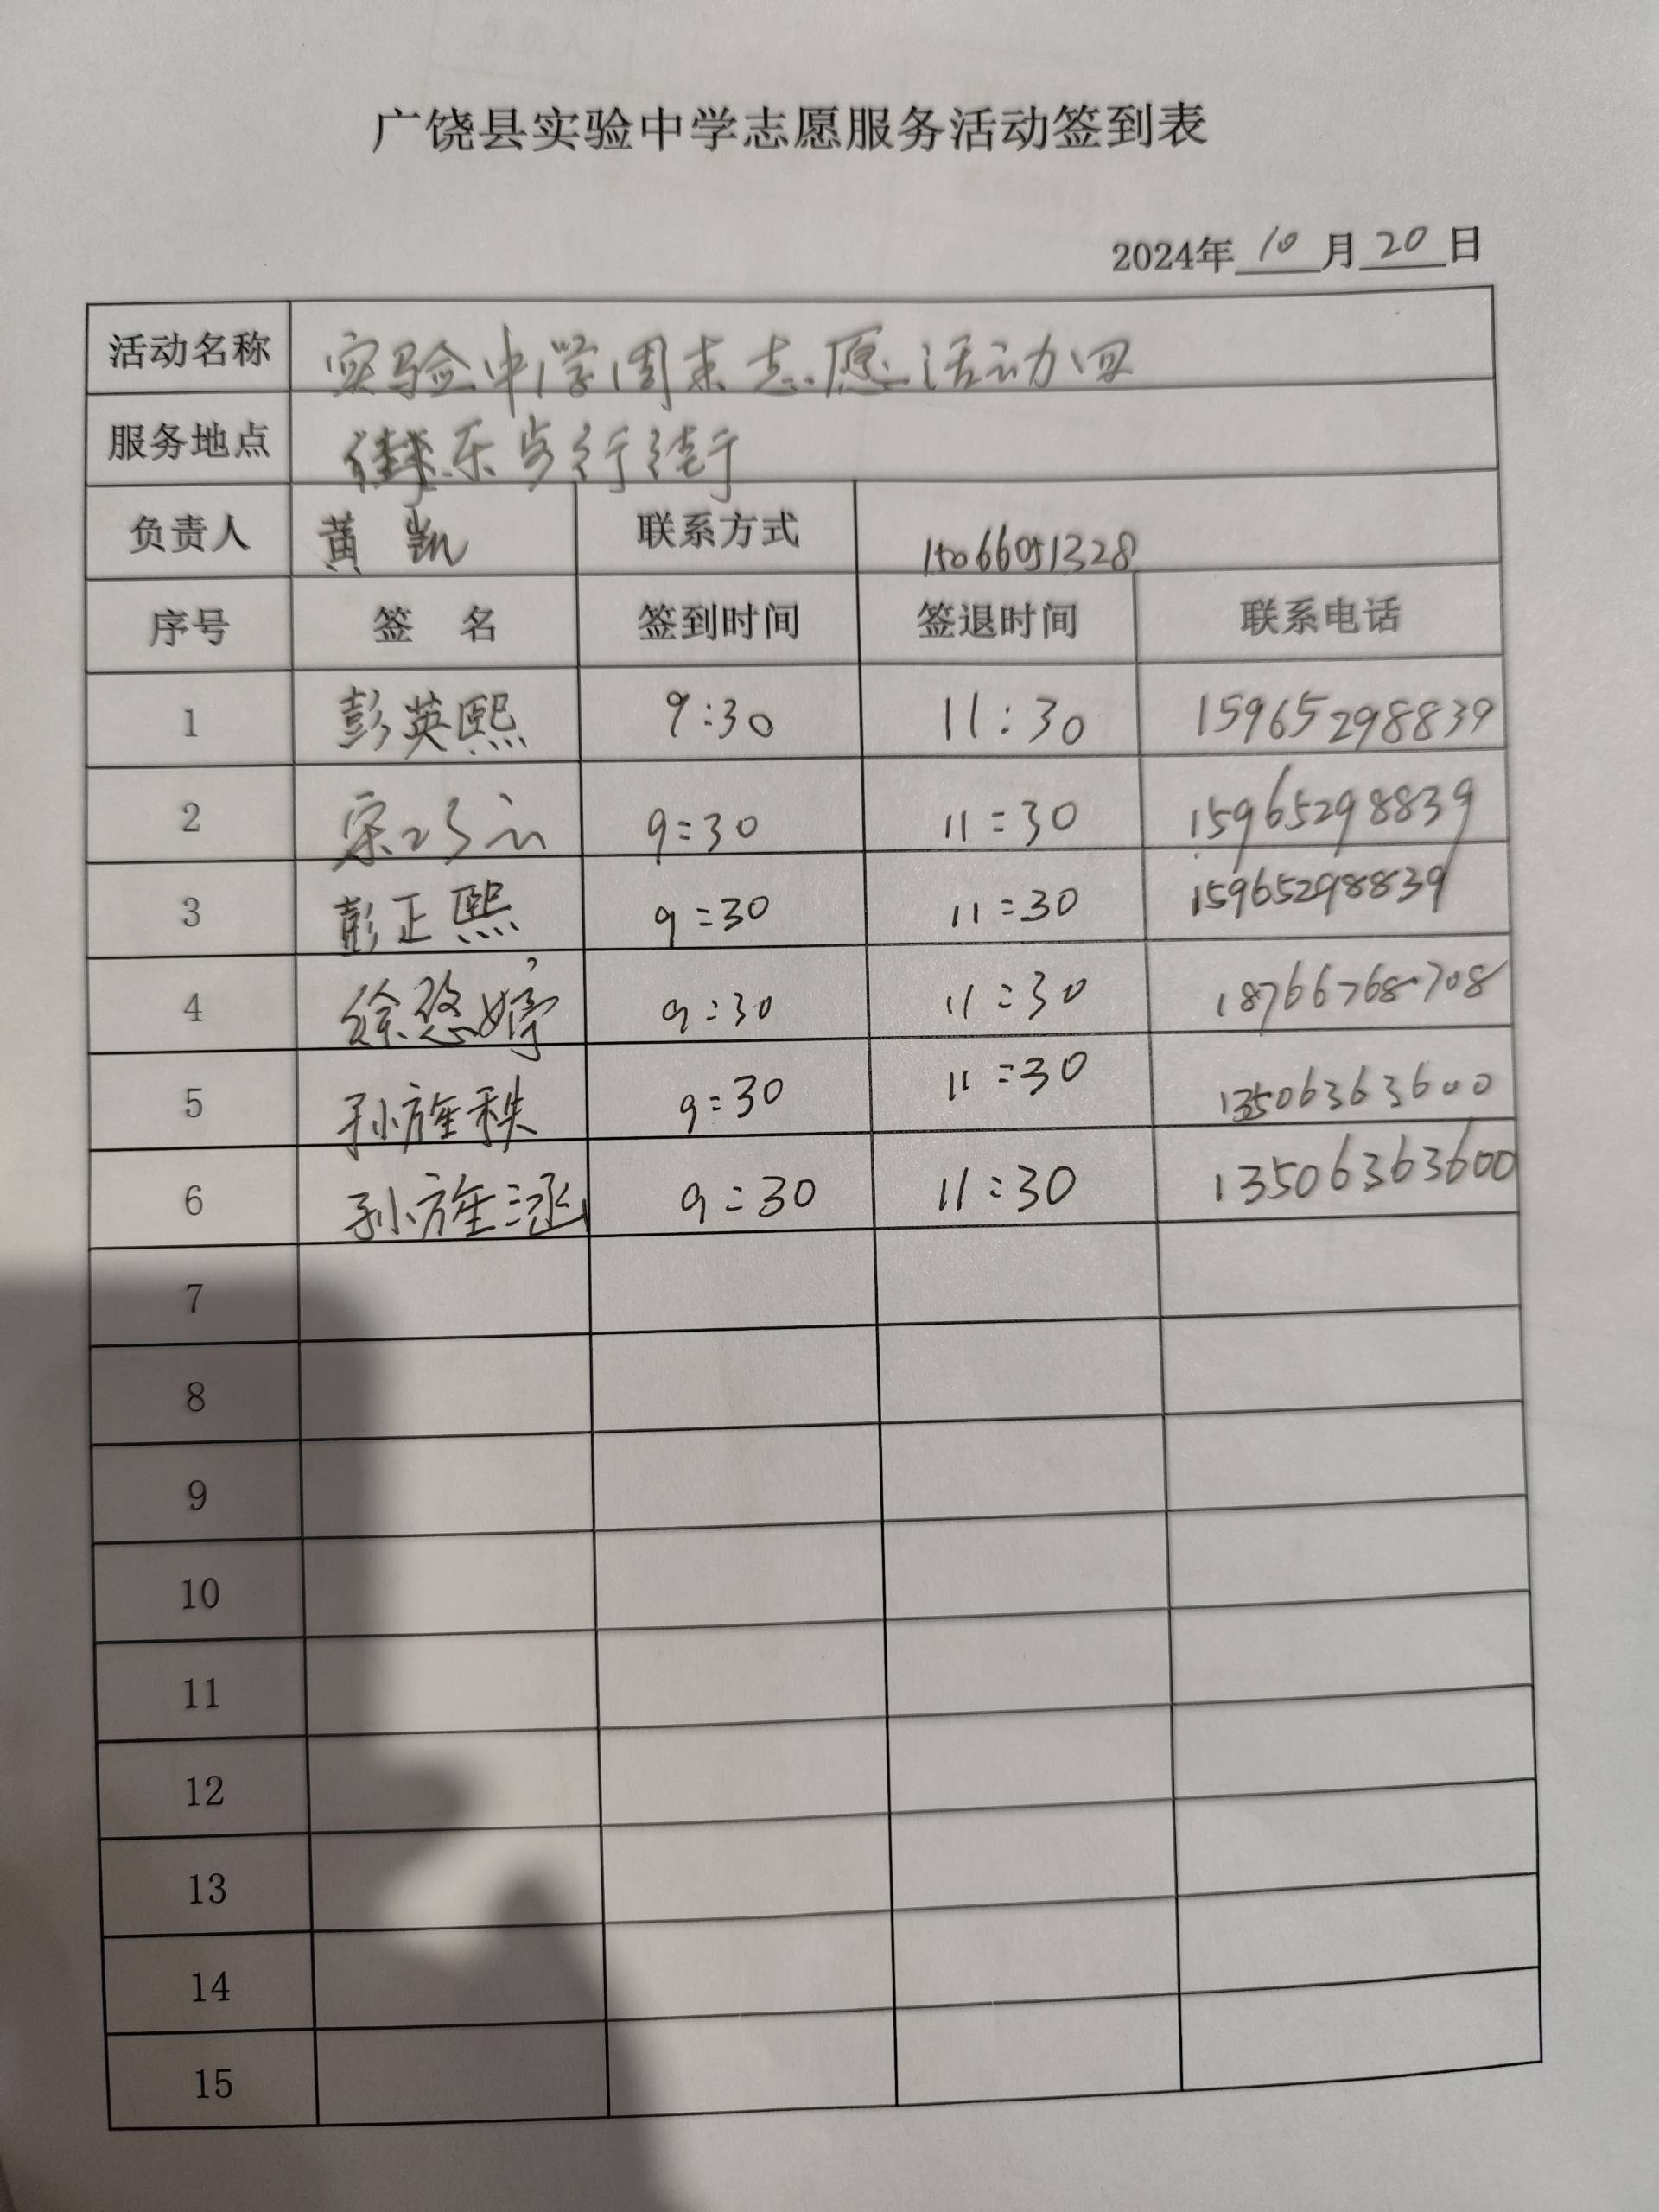 广饶县实验中学志愿服务活动签到表
2024年 10 月 20 日
活动名称 实验中学周末志愿活动四
服务地点 乐步行街
负责人 黄凯 联系方式 15066051328
序号 签 名 签到时间 签退时间 联系电话
1 彭英熙 9:30 11:30 15965298839
2 宋 9:30 11:30 15965298839
3 彭正熙 9:30 11:30 15965298839
4 徐悠婷 9:30 11:30 18766768708
5 孙旌秩 9:30 11:30 13506363600
6 孙旌涵 9:30 11:30 13506363600
7
8
9
10
11
12
13
14
15